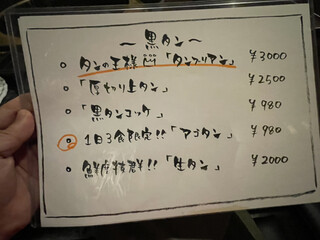 ～黒タン～
○ タンの王様 「タンブリアン」 ¥3000
○ 「厚切り上タン」 ¥2500
○ 「黒タンコック」 ¥980
○ 1日3食限定!!「アゴタン」 ¥980
○ 鮮度抜群!!「生タン」 ¥2000